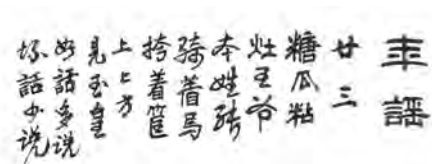 年謡
廿三
糖瓜粘
灶王爷
本姓張
骑着馬
挎着筐
上上方
見玉皇
好話多说
坏話少说